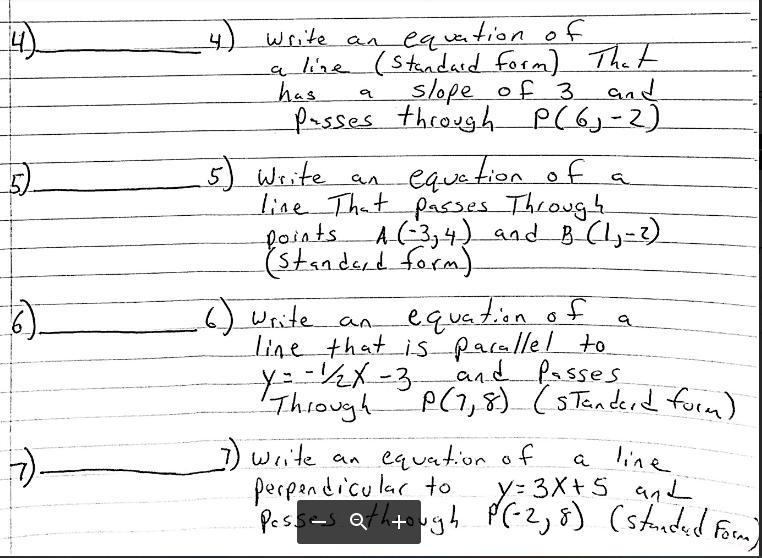 4) 4) Write an equation of
a line (standard form) That
has a slope of 3 and
Passes through P(6,-2)
5) 5) Write an equation of a
line That passes Through
points A(-3,4) and B(1,-2)
(standard form)
6) 6) Write an equation of a
line that is parallel to
y=-1/2x-3 and Passes
Through P(7,8) (sTandard form)
7) 7) Write an equation of a line
perpendicular to y=3x+5 and
Passes through P(-2,8) (standard Form)